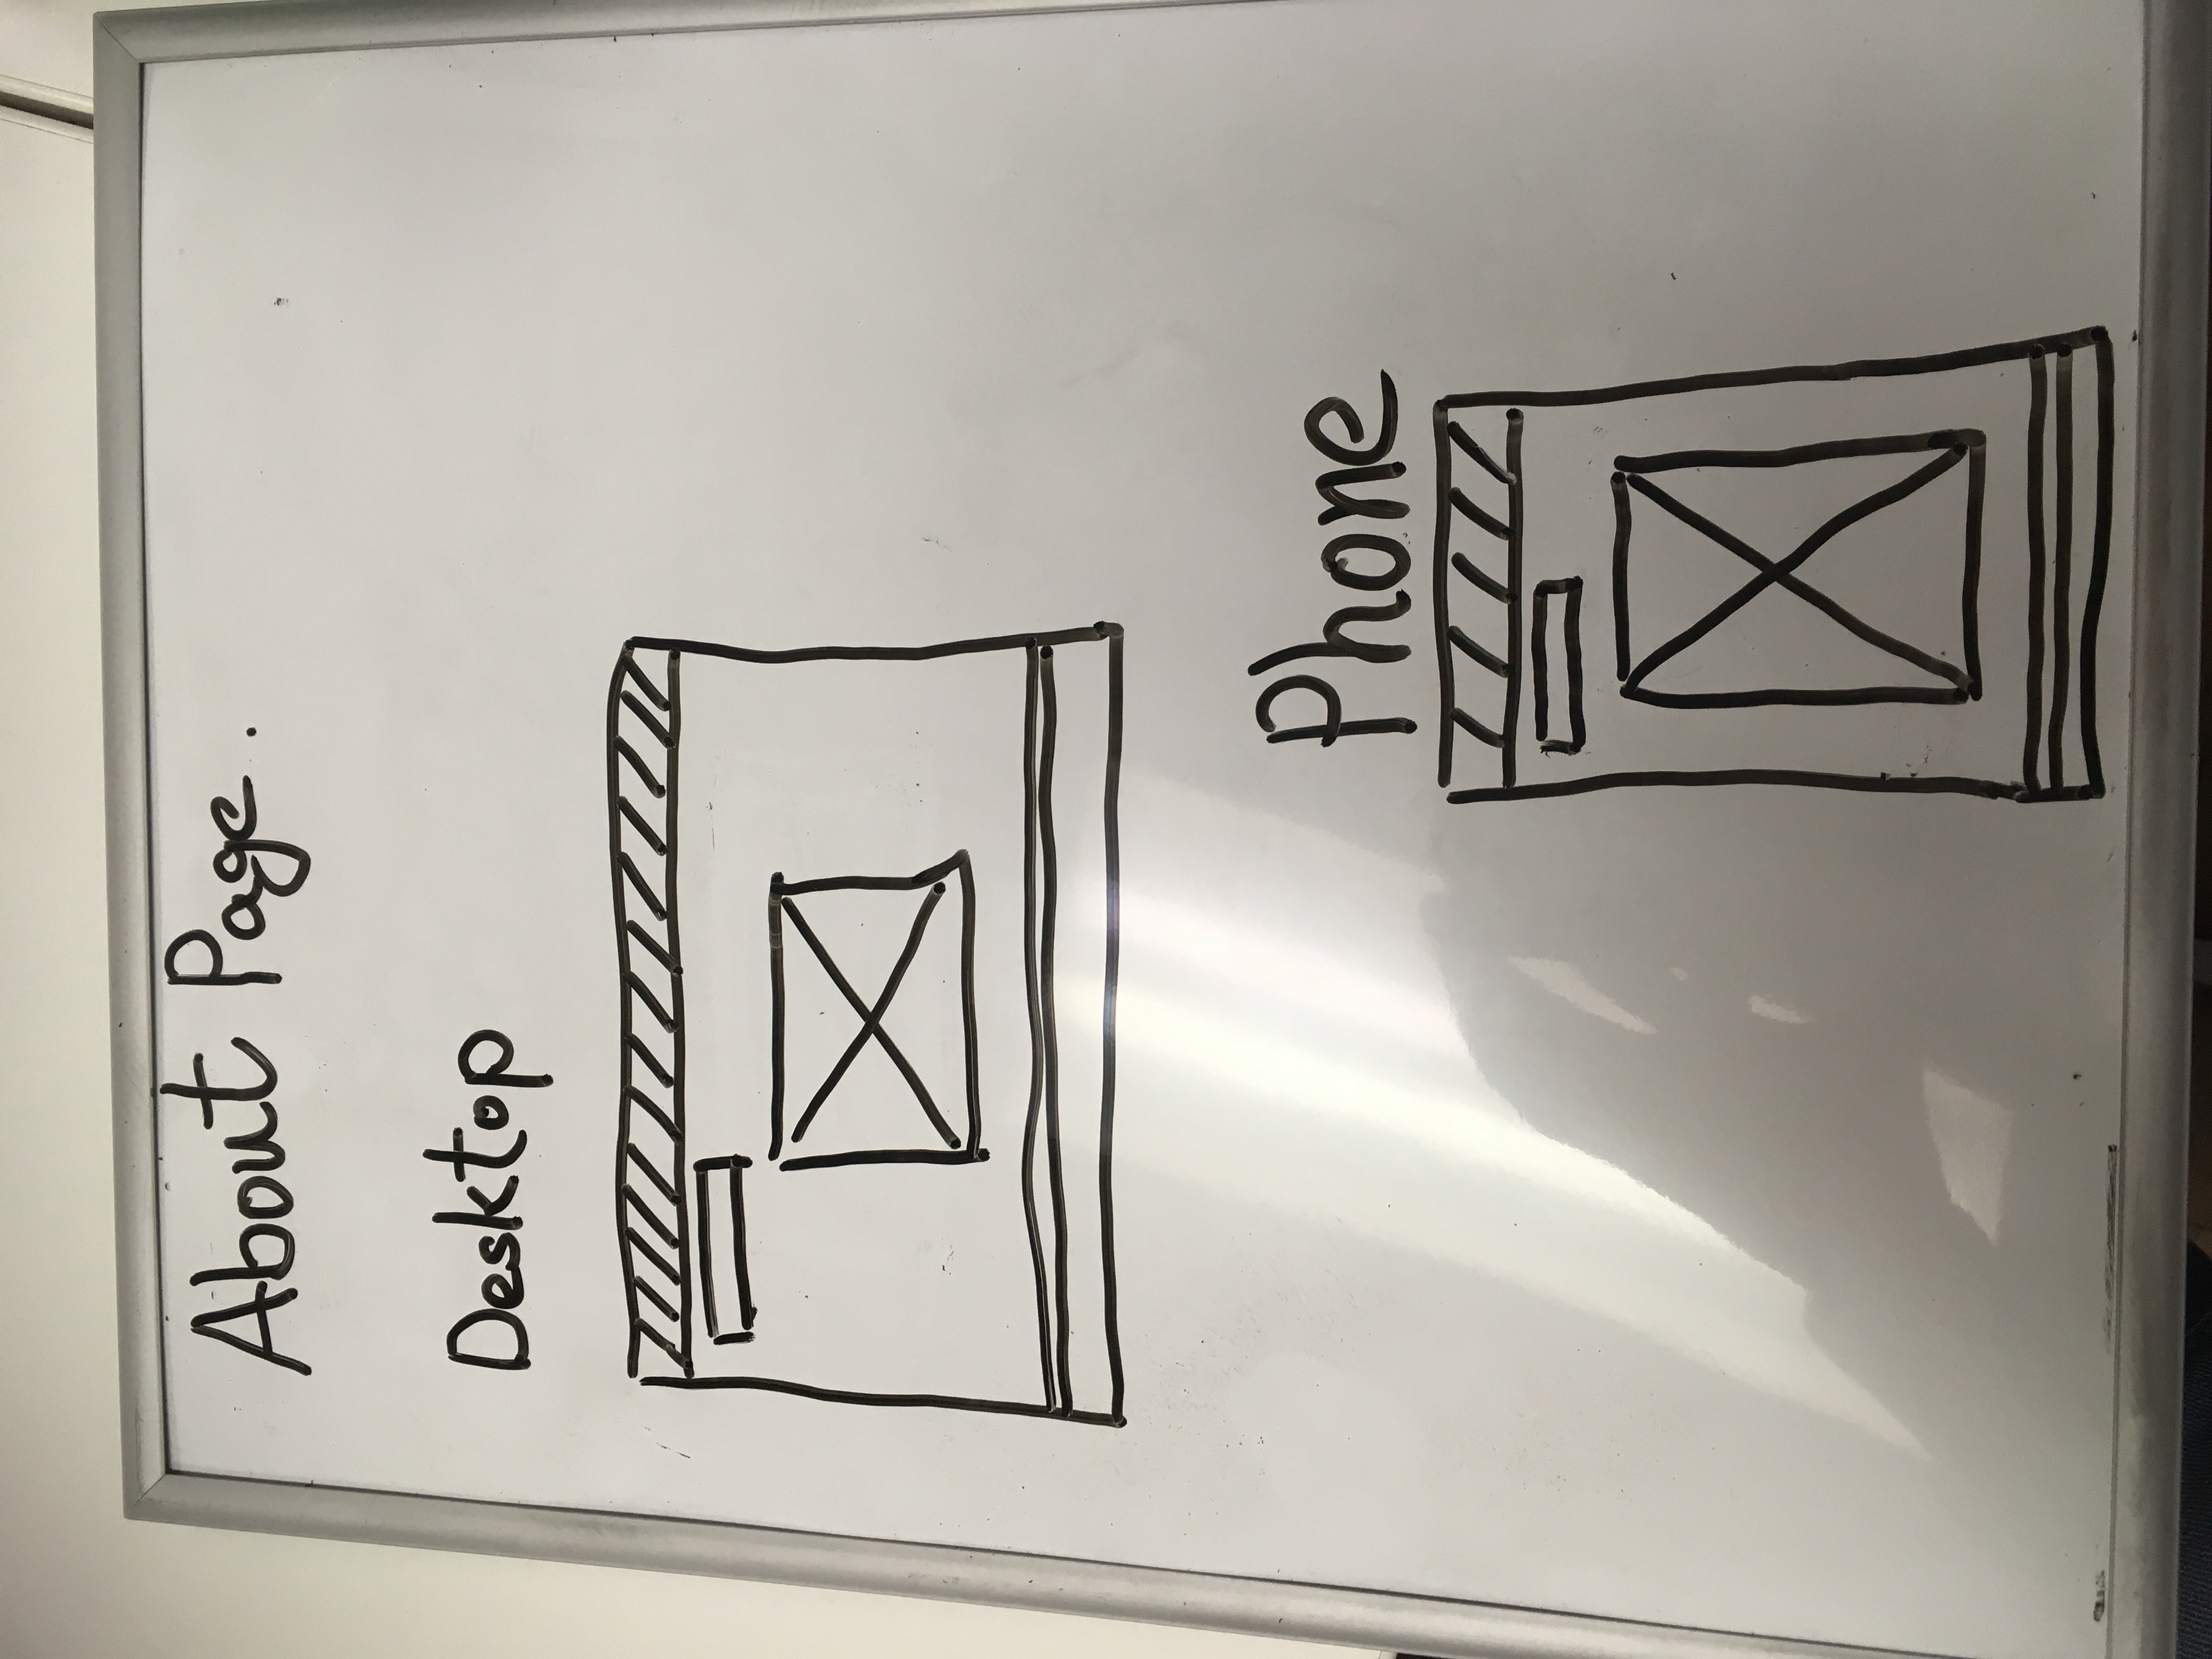 About Page.
Desktop
Phone